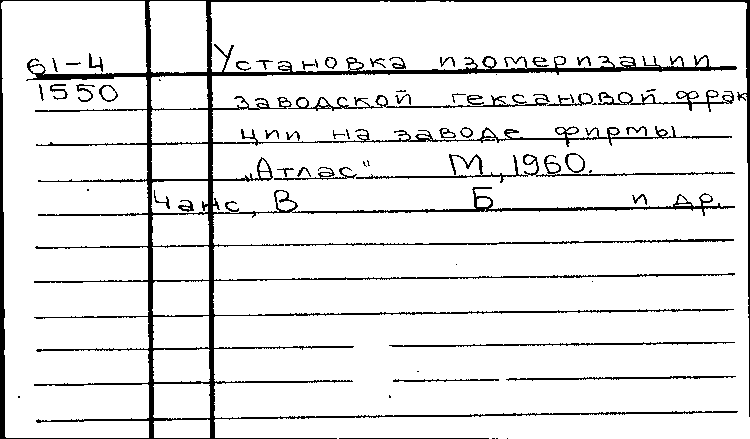 61-4 Установка изомеризации
1550 заводской гексановой фрак
ции на заводе фирмы
„Атлас" М., 1960.
Чанс, В Б и др.